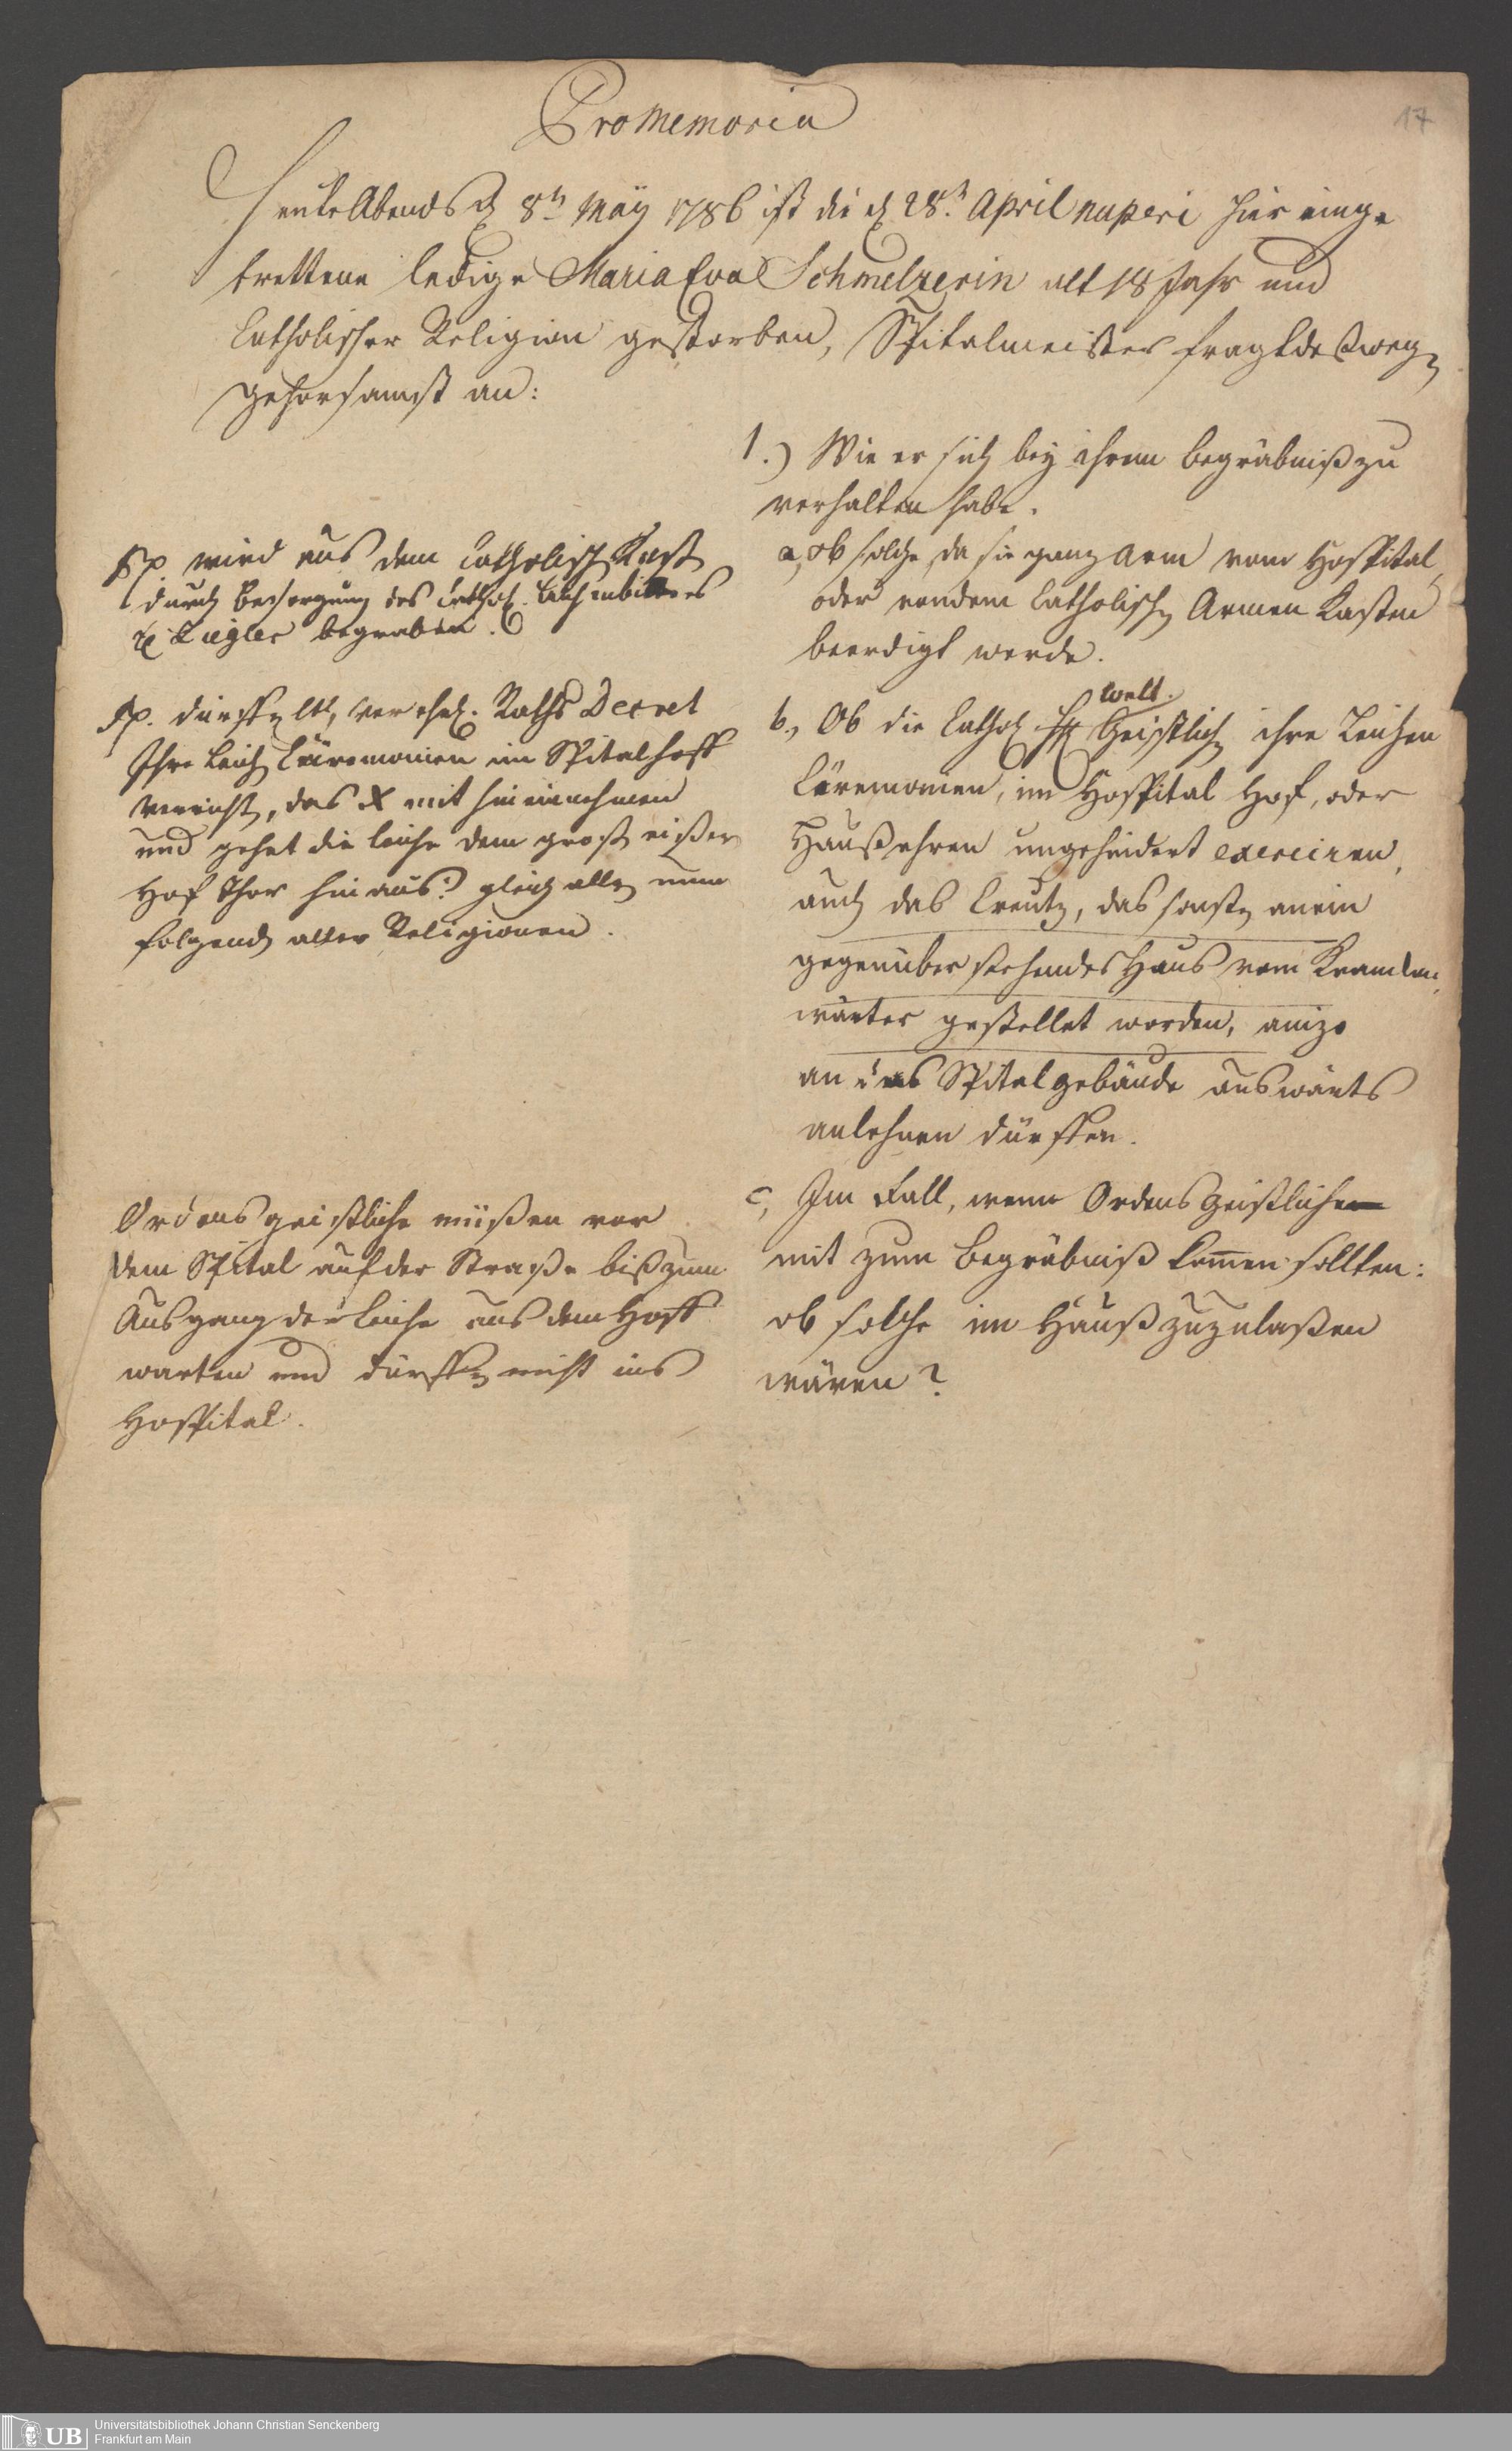 Promemoria
17
Heute Abends d. 8ten Maÿ 1786 ist die d. 28.t April nuperi hier einge
trettene ledige Maria Eva Schmelzerin alt 18 Jahr und
Catholischer Religion gestorben, Spitalmeister fragt deßwegen
gehorsamst an:
1.) Wie er sich beÿ ihrem Begräbniß zu
verhalten habe.
a, Ob solche, da sie ganz arm vom Hospital,
oder von dem Catholischen Armen Kasten
beerdigt werde.
b., Ob die Cathol. HH welt. Geistlich. ihre Leichen
Cäremonien, im Hospital Hof, oder
Haußehren ungehindert exerciren,
auch das Creutz, das sonsten an ein
gegenüber stehendes Haus vom Krancken
wärter gestellet worden, anizo
an das Spitalgebäude auswärts
anlehnen dürffen.
c, Im Fall, wenn Ordens Geistliche
mit zum Begräbniß kommen sollten:
ob solche im Hauß zuzulaßen
wären?
wird aus dem Catholisch. Kast.
durch Besorgung des Cathol. Leichenbitters
Ziegler begraben.
dürffen Raths Decret
Ihre Leich Cäremonien im Spitalhoff
verricht., das X mit hineinnehmen
und gehet die Leiche dem groß. eißer
Hof Thor hinaus: gleich allen nun
folgend. aller Religionen.
Ordensgeistliche müßen vor
dem Spital auf der Straße biß zum
Ausgang der Leiche aus dem Hoff
warten und dürffen nicht ins
Hospital.
UB
Universitätsbibliothek Johann Christian Senckenberg
Frankfurt am Main